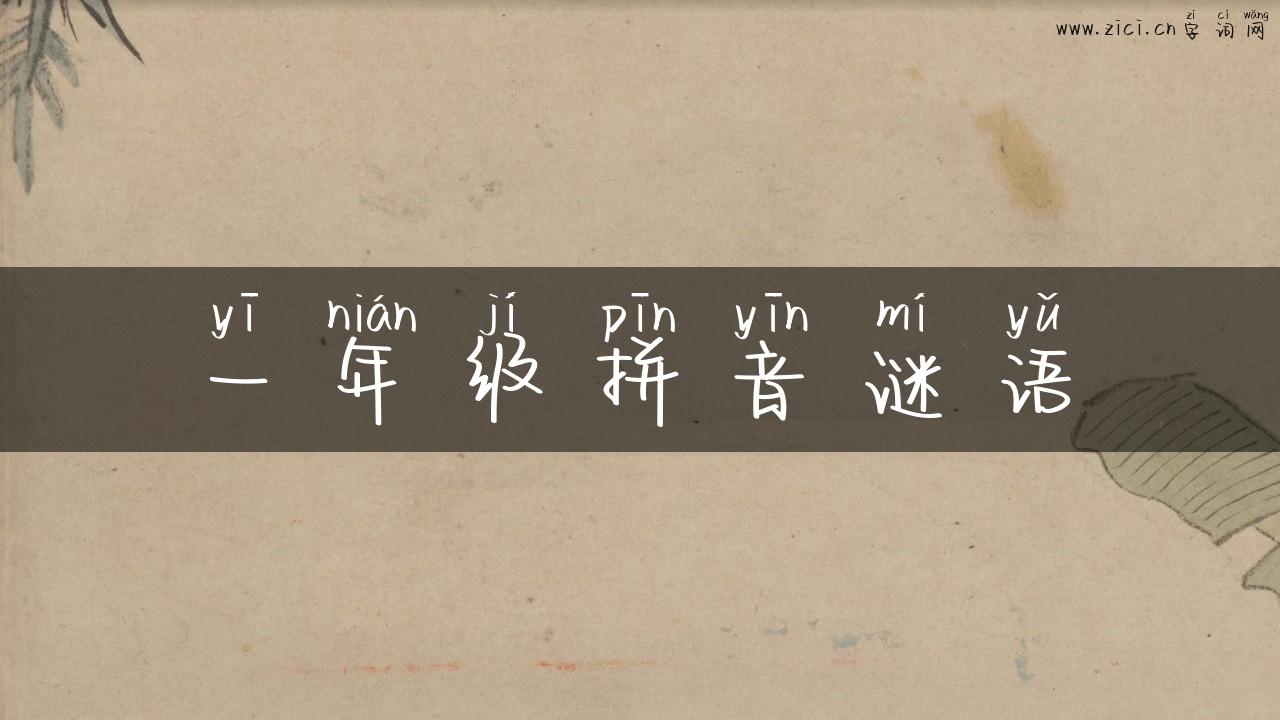 zì cí wǎng
www.zici.cn 字 词 网
yī nián jí pīn yīn mí yǔ
一 年 级 拼 音 谜 语